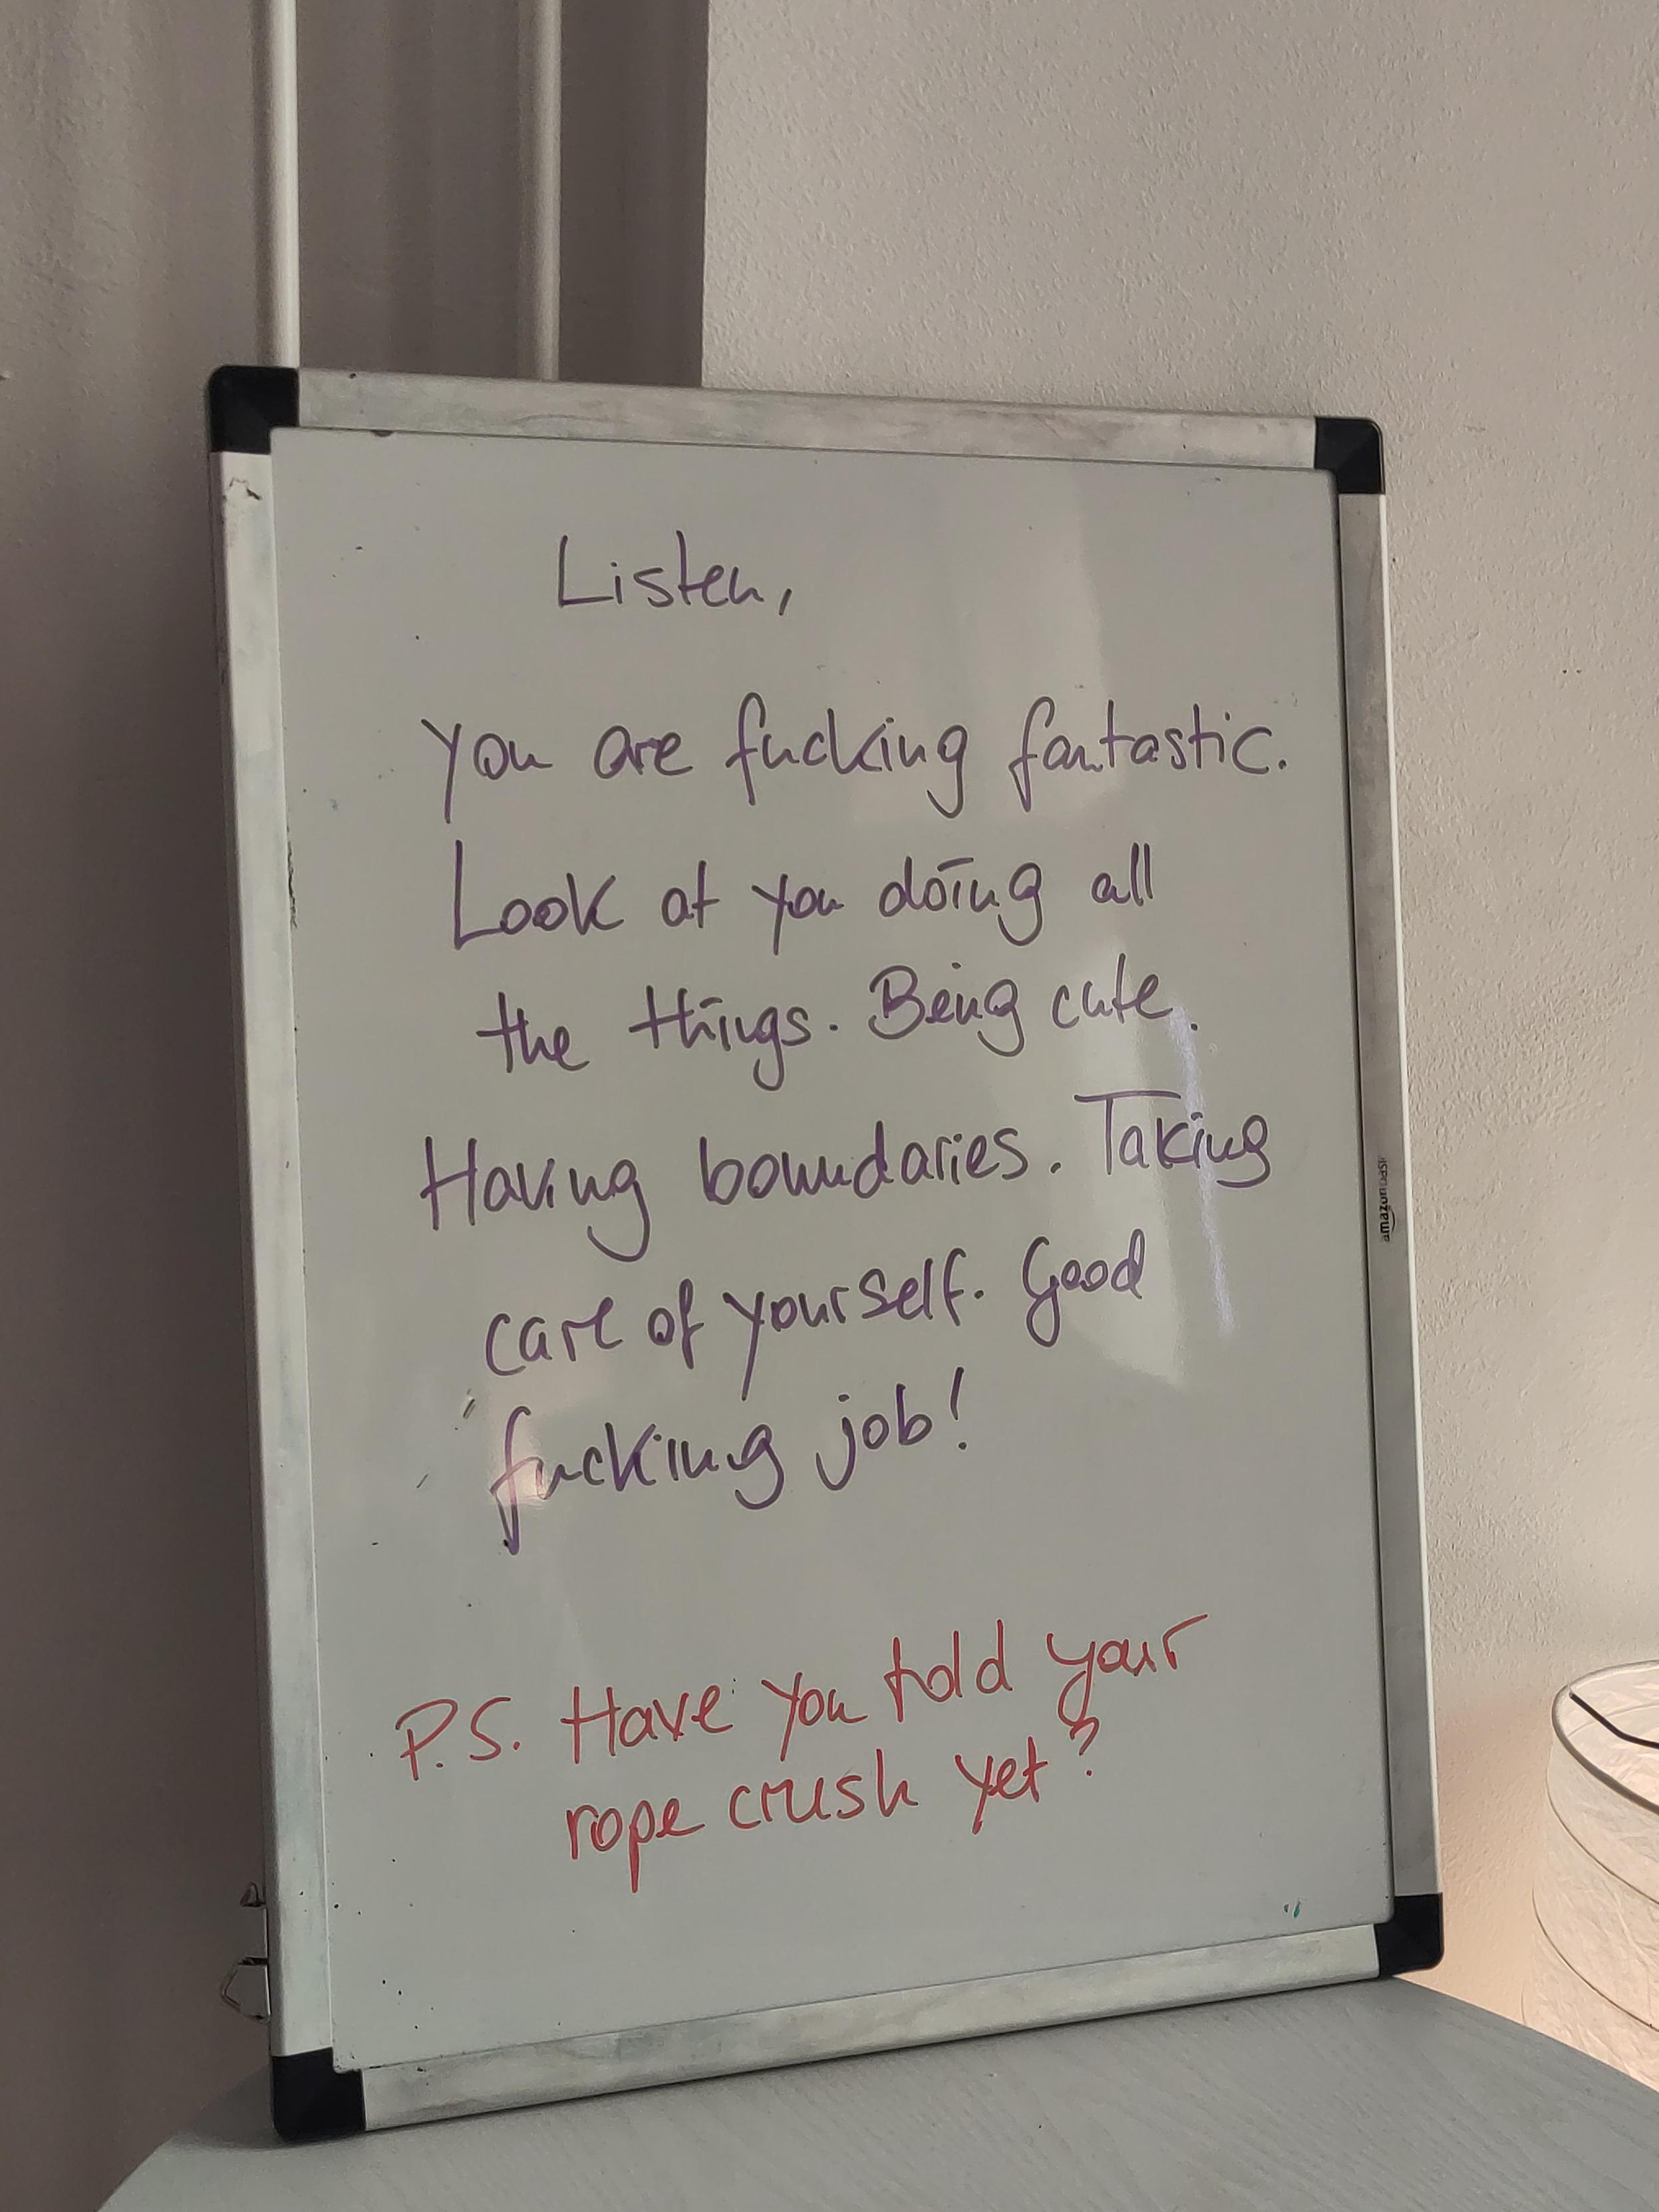 Listen,
you are fucking fantastic.
Look at you doing all
the things. Being cute.
Having boundaries. Taking
care of yourself. Good
fucking job!
P.S. Have you told your
rope crush yet?